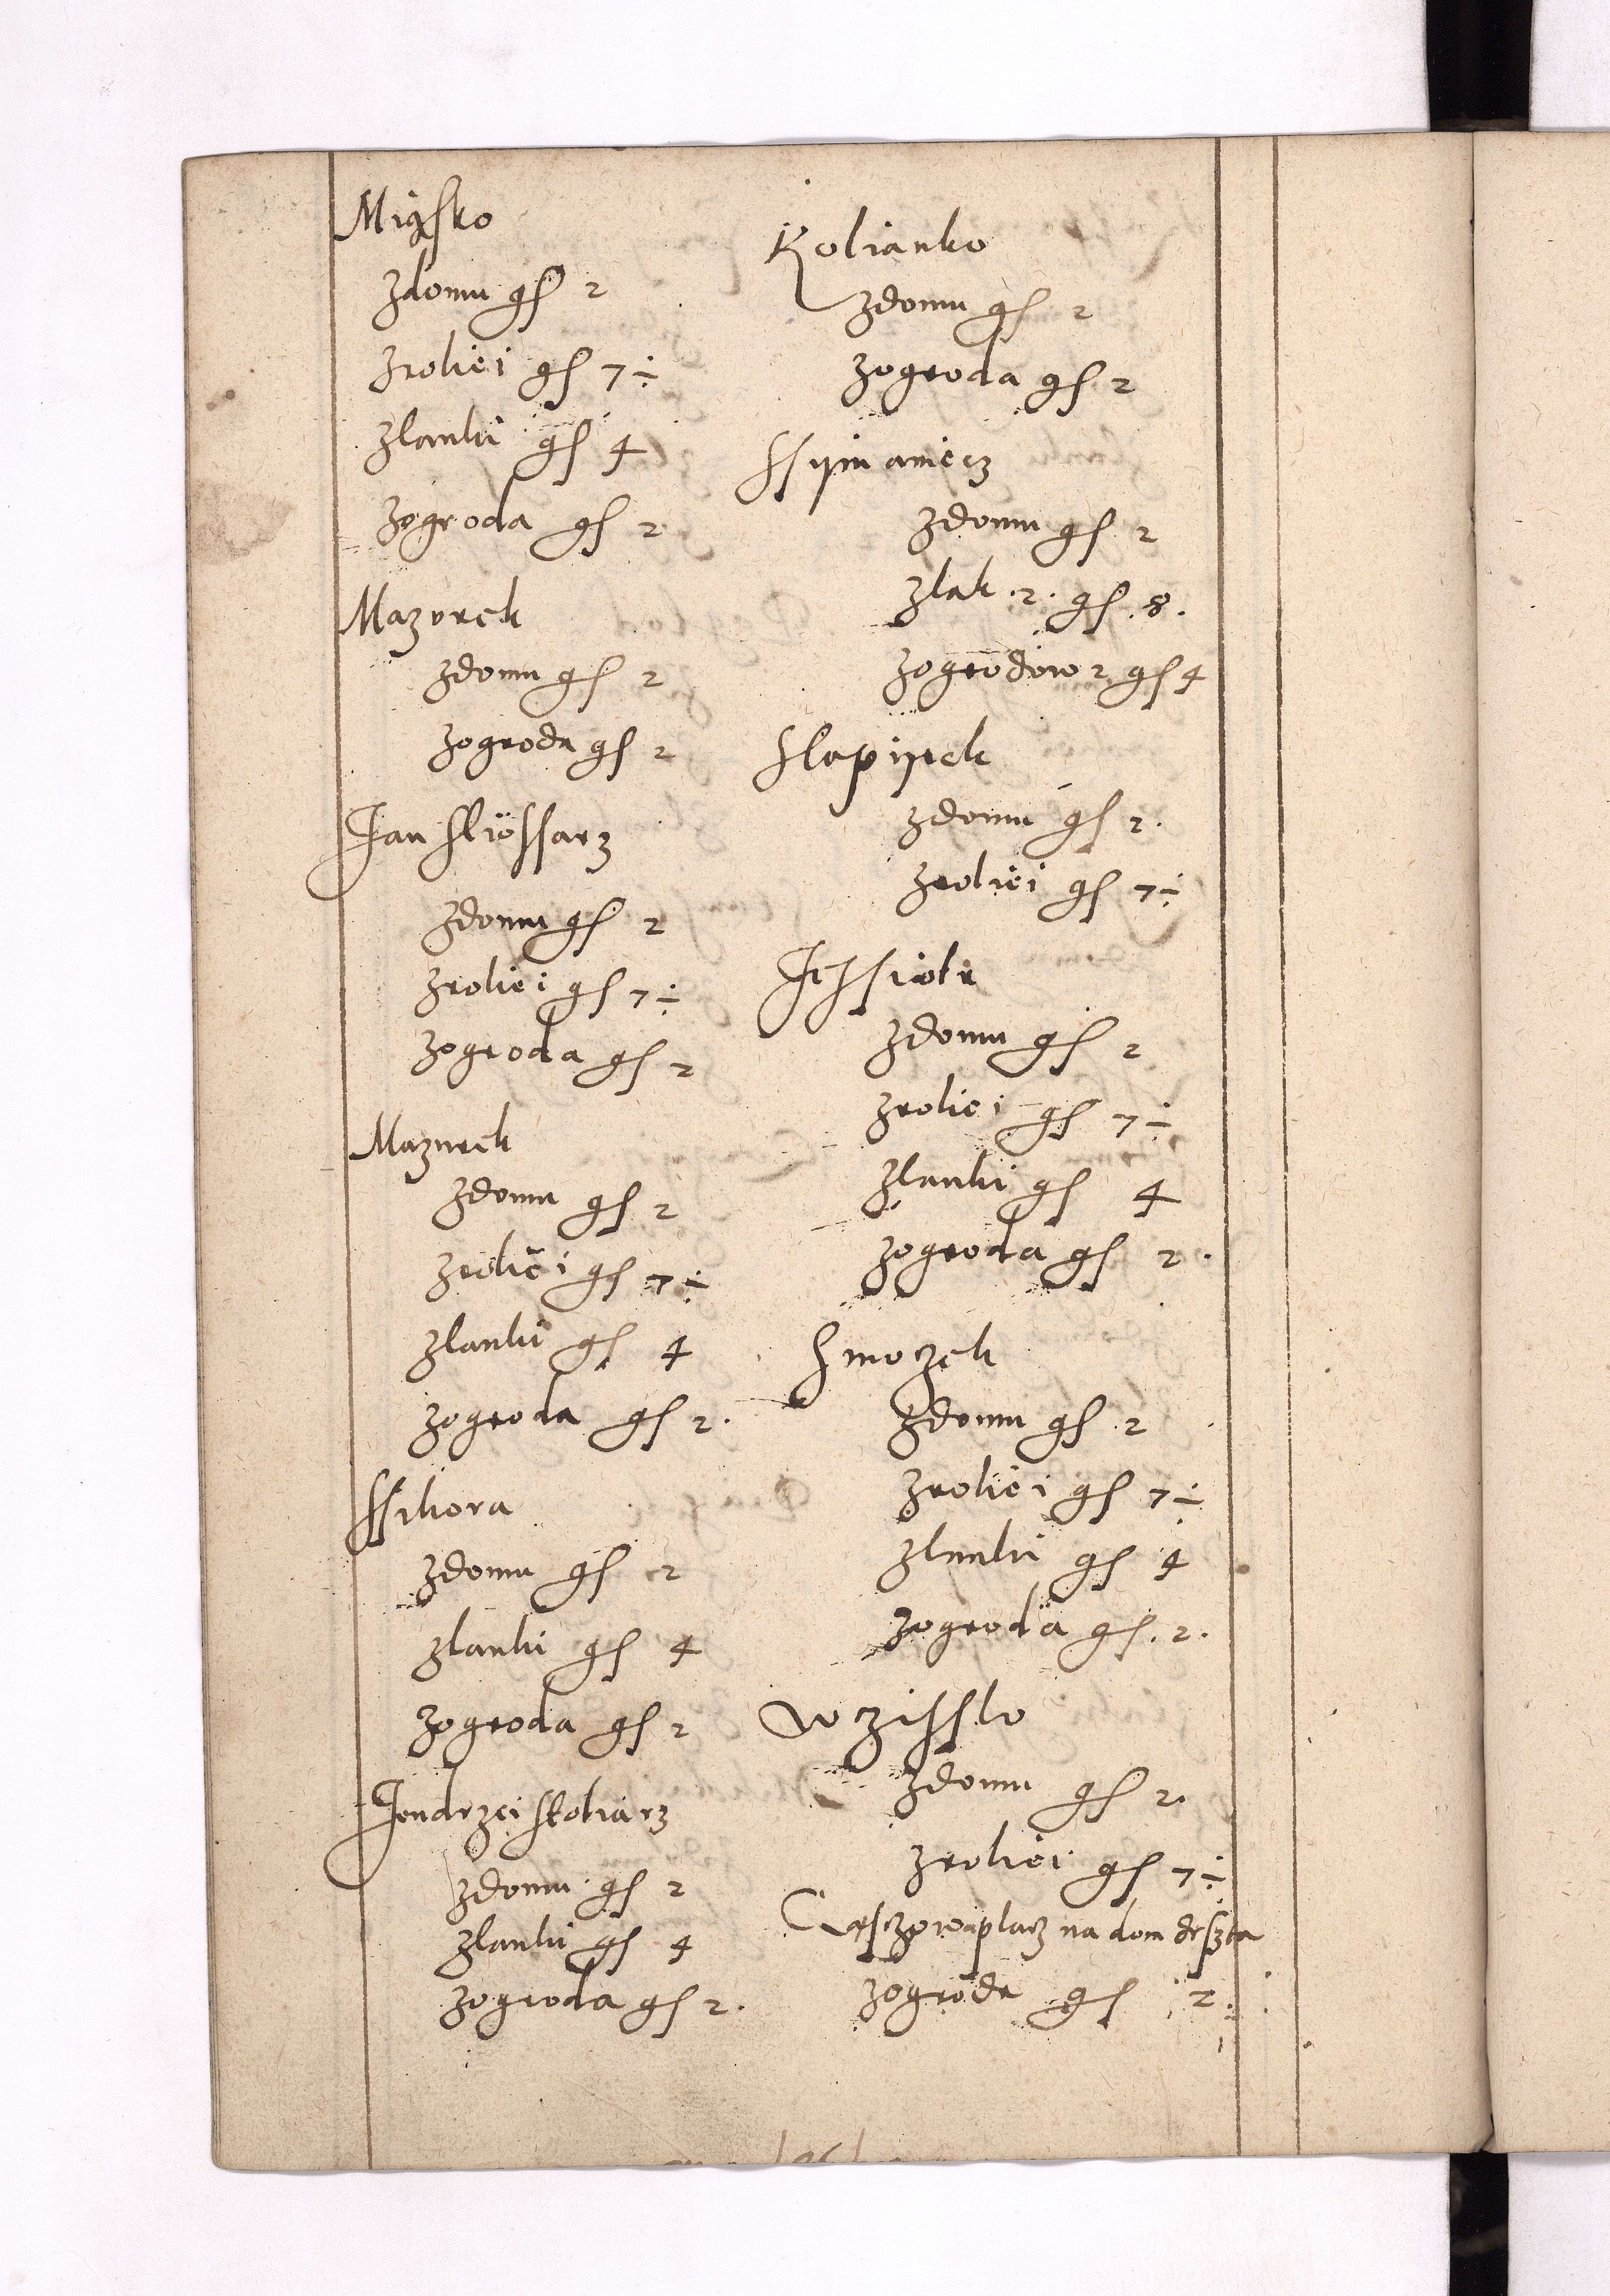 Miąsko
zdomu gſ 2
zroliei gſ 7 ÷
zlanki gſ 4
zogroda gſ 2
Mazvrek
zdomu gſ 2
zogroda gſ 2
Jan sliossarz
zdomu gſ 2
zroliei gſ 7 ÷
zogroda gſ 2
Mazurek
zdomu gſ 2
zroliei gſ 7 ÷
zlanki gſ 4
zogroda gſ 2.
Ssikora
zdomu gſ 2
zlanki gſ 4
zogroda gſ 2
Jendrzei stoliarz
zdomu gſ 2
zlanki gſ 4
zogroda gſ 2.
Kolianko
zdomu gſ 2
zogroda gſ 2
Ssymaniecz
zdomu gſ 2
zlak .2. gſ .8.
zogrodow 2 gſ 4
slapiyek
zdomu gſ 2.
zroliei gſ 7 ÷
Jessiotr
zdomu gſ 2
zroliei gſ 7 ÷
zlanki gſ 4
zogroda gſ 2.
Smoczek
zdomu gſ 2
zroliei gſ 7 ÷
zlanki gſ 4
zogroda gſ .2.
wzissło
zdomu gſ 2.
zroliei gſ 7 ÷
placz na dom
zogroda gſ 2